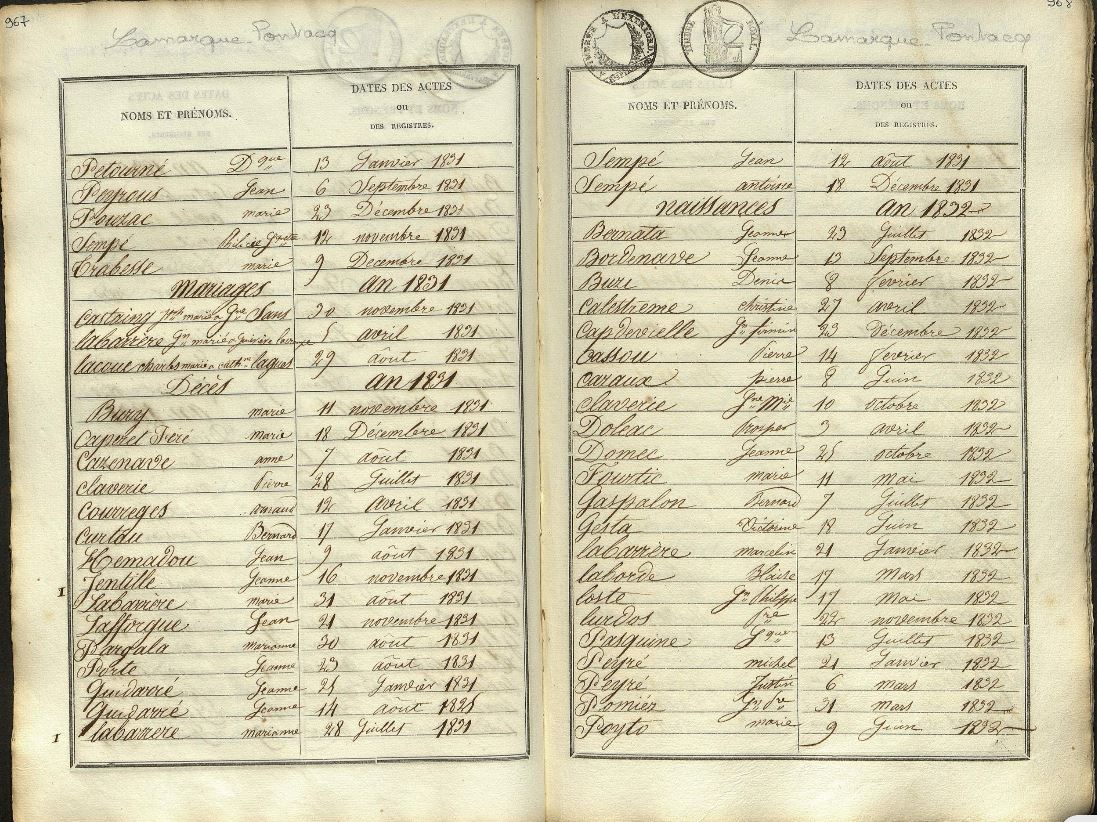 967
Lamarque-Pontacq
NOMS ET PRÉNOMS.
DATES DES ACTES
ou
DES REGISTRES.
Petourné Dque 13 Janvier 1831
Peyrous Jean 6 Septembre 1831
Pouzac marie 23 Décembre 1831
Sempé 12 novembre 1831
Trabesse marie 9 Décembre 1831
Mariages an 1831
Castaing marié a Sans 30 novembre 1831
labarrère marié a 5 avril 1831
lacoue charles marié a cathne lagues 29 août 1831
Décès an 1831
Burg marie 11 novembre 1831
Caperet Féré marie 18 Décembre 1831
Cazenave anne 7 août 1831
Claverie Pierre 28 Juillet 1831
Courreges arnaud 12 avril 1831
Curtau Bernard 17 Janvier 1831
Hemadou Jean 9 août 1831
Jentille Jeanne 16 novembre 1831
1 Labarrère marie 31 août 1831
Lafforgue Jean 21 novembre 1831
Pargala marianne 30 août 1831
Porte Jeanne 23 août 1831
Guidarré Jeanne 25 Janvier 1831
Guidarré Jeanne 14 août 1825
1 labarrere marianne 28 Juillet 1831
968
Lamarque-Pontacq
A L'EXTRAORD.
TIMBRE ROYAL
NOMS ET PRÉNOMS.
DATES DES ACTES
ou
DES REGISTRES.
Sempé Jean 12 août 1831
Sempé antoine 18 Décembre 1831
naissances an 1832
Bernata Jeanne 23 Juillet 1832
Bordenave Jeanne 13 Septembre 1832
Buzi Denis 8 fevrier 1832
Calestreme christine 27 avril 1832
Capdevielle Jn firmin 23 Décembre 1832
Cassou Pierre 14 fevrier 1832
Cazaux pierre 8 Juin 1832
Claverie Jne Mie 10 octobre 1832
Doleac Prosper 3 avril 1832
Domec Jeanne 25 octobre 1832
Fourtic marie 11 mai 1832
Gaspalon Bernard 7 Juillet 1832
Gesta Victorine 18 Juin 1832
labarrère marcelin 21 Janvier 1832
laborde Blaise 17 Mars 1832
loste Jn Philippe 17 mai 1832
lurdos 22 novembre 1832
Pasquine Dque 13 Juillet 1832
Peyré michel 21 Janvier 1832
Peyré Justin 6 mars 1832
Pomiez 31 mars 1832
Poyto marie 9 Juin 1832